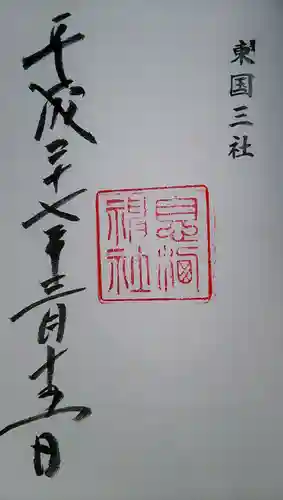 東国三社
息栖
神社
平成二十七年三月十五日